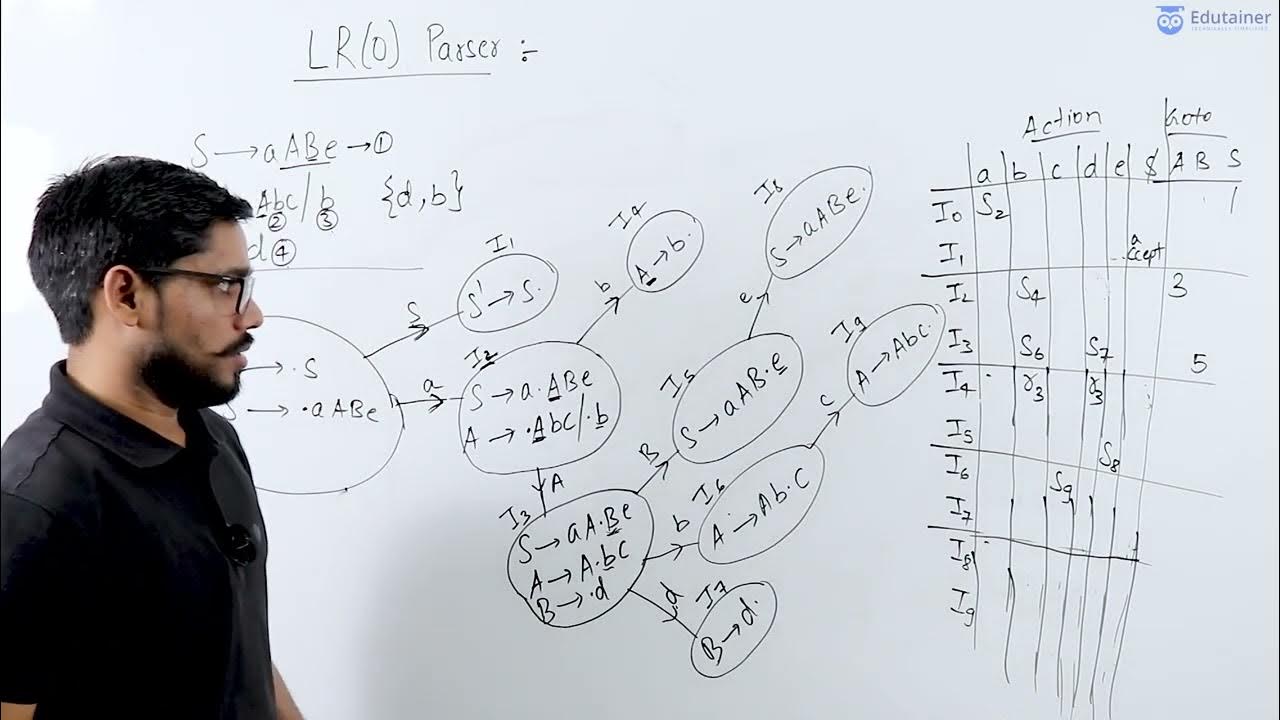 Edutainer
TECHNICALLY SIMPLIFIED
LR(0) Parser :-
S → aABe → ①
Abc / b {d, b}
② ③
d ④
→ ·S
S → ·aABe
S
a
I1
S' → S·
I2
S → a·ABe
A → ·Abc/·b
b
I4
A → b·
A
I3
S → aA·Be
A → A·bc
B → ·d
B
I5
S → aAB·e
e
I8
S → aABe·
b
I6
A → Ab·c
c
I9
A → Abc·
d
I7
B → d·
Action Goto
a b c d e $ A B S
I0 S2 1
I1 accept
I2 S4 3
I3 S6 S7 5
I4 r3 r3
I5 S8
I6 S9
I7
I8
I9